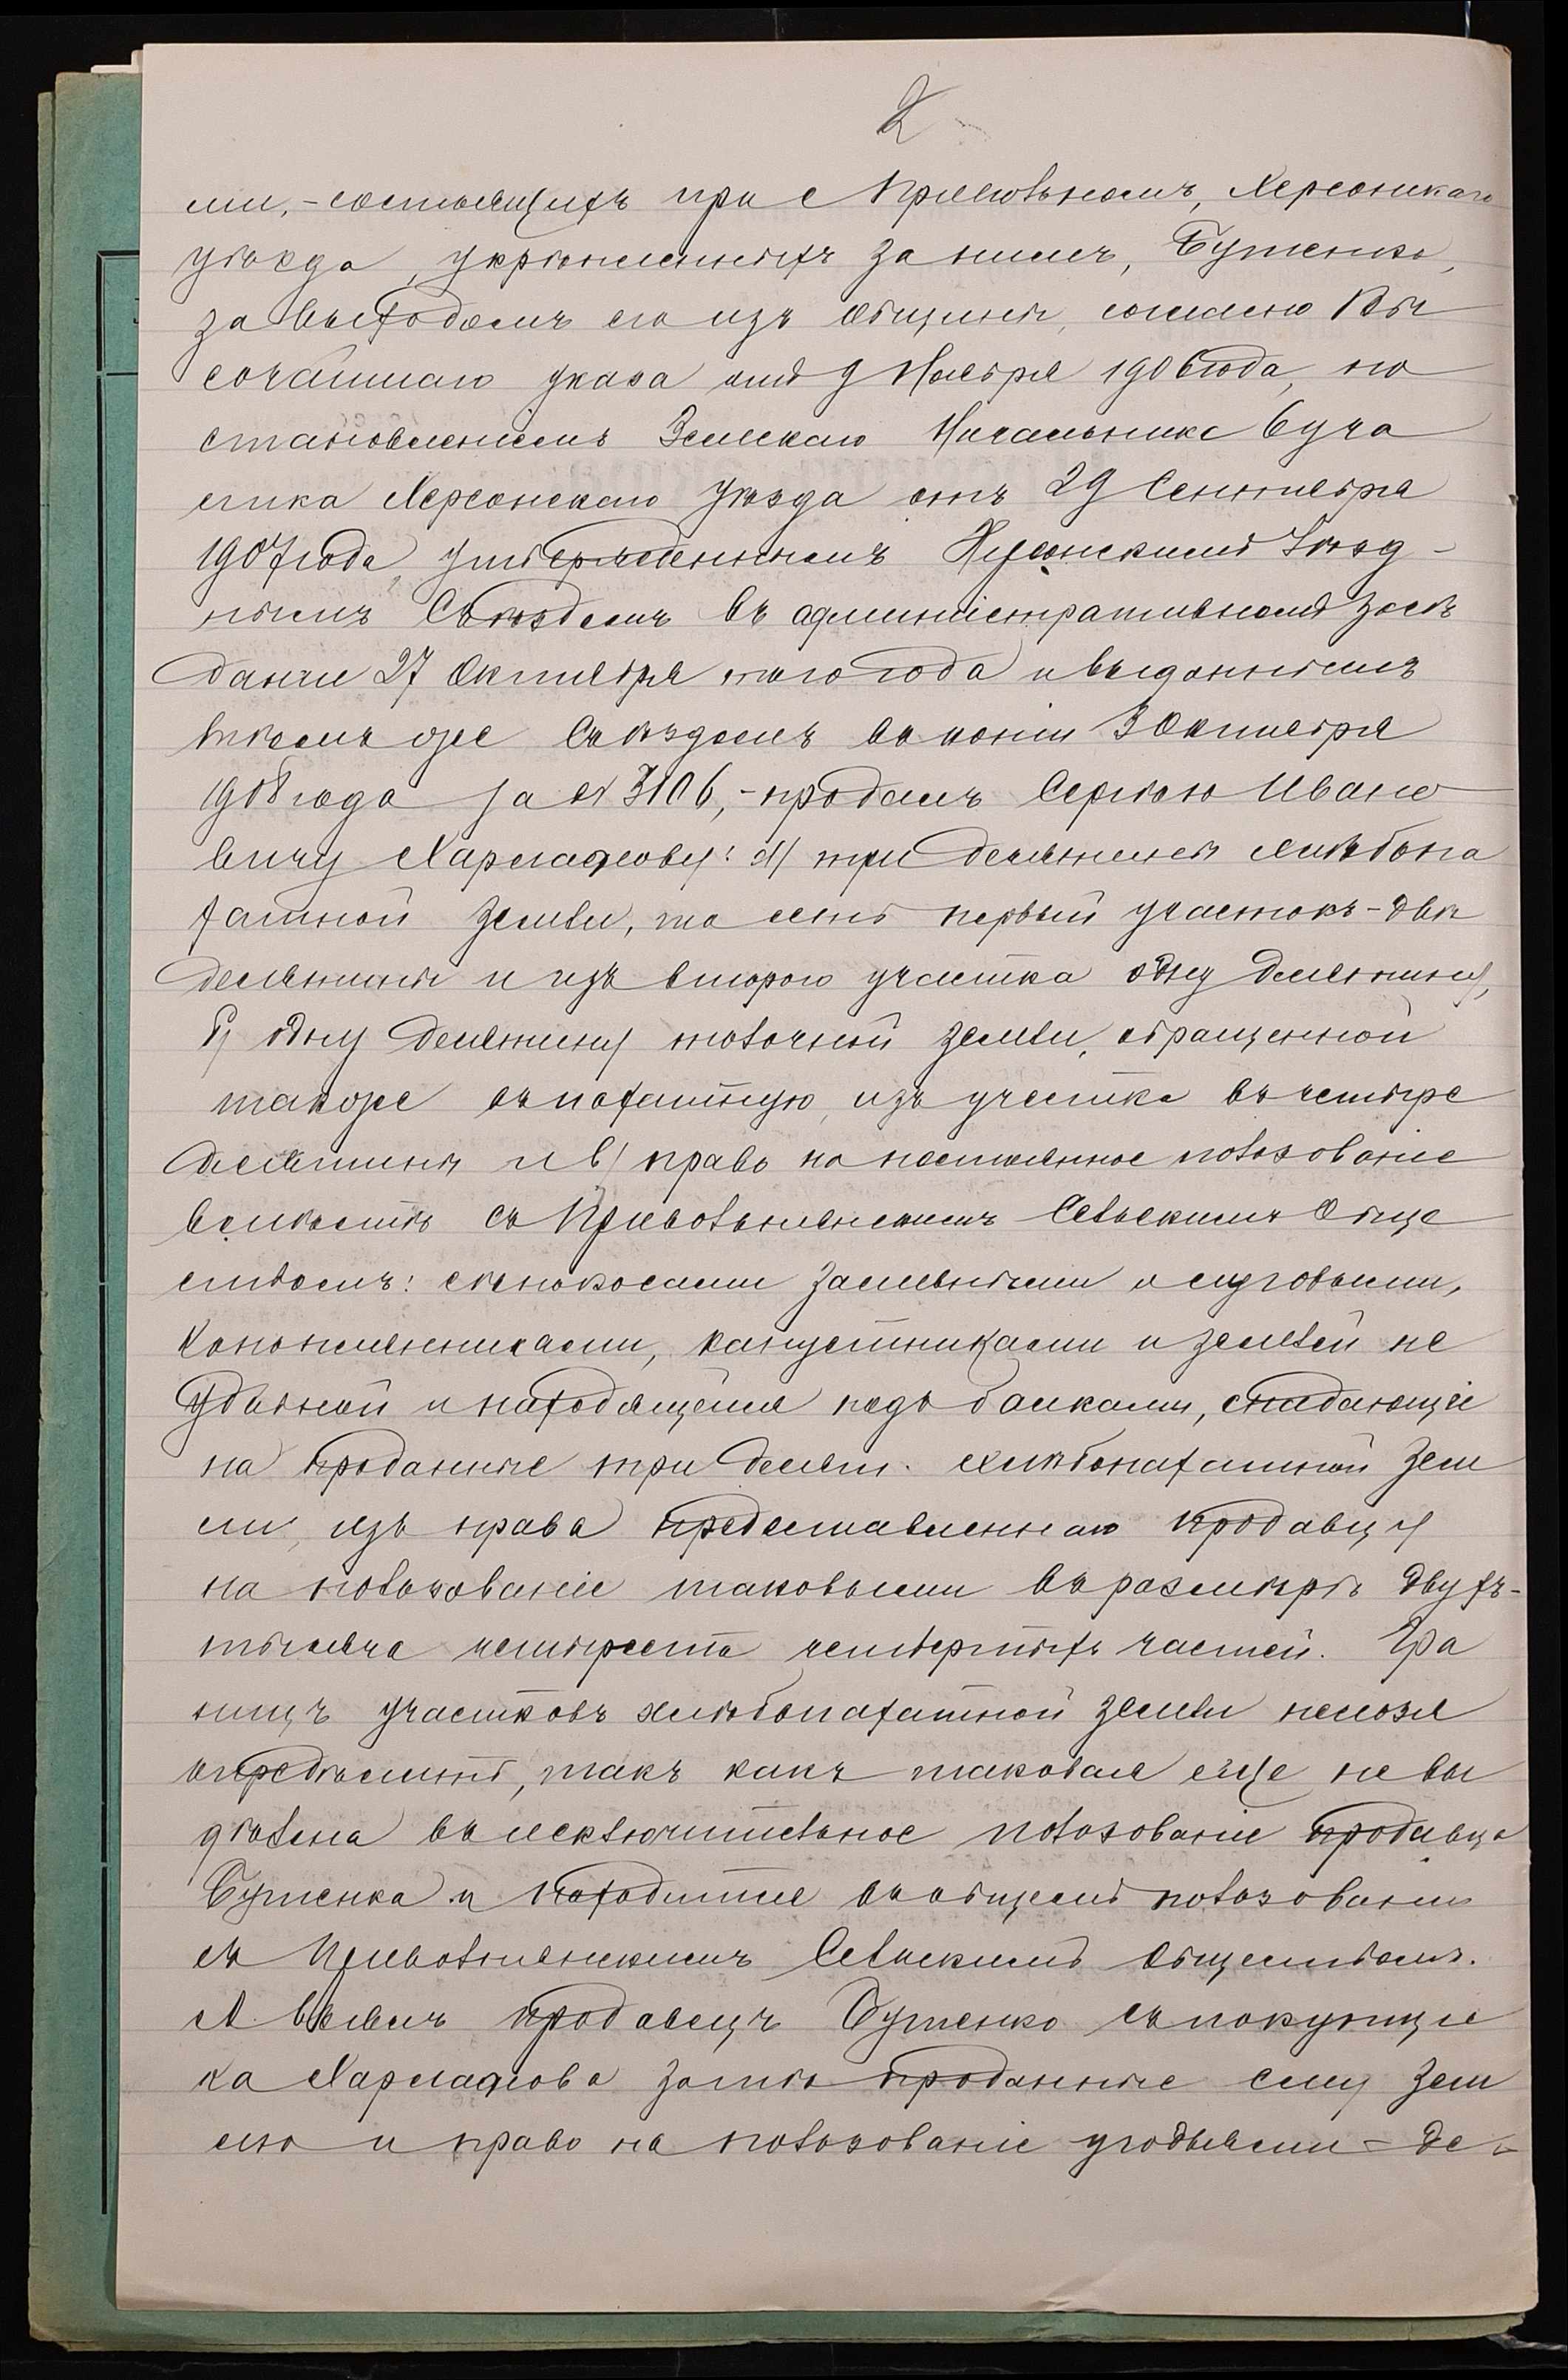 2
ми,-состоящихъ при с Привольномъ, Херсонскаго
уѣзда, укрѣпленныхъ за нимъ, Бутенко,
за выходомъ его изъ общины, согласно Вы
сочайшаго указа отъ 9 Ноября 1906 года, по
становленіемъ Земскаго Начальника 6 уча
стка Херсонскаго уѣзда отъ 29 Сентября
1907 года, утвержденнымъ Херсонскимъ Уѣзд-
нымъ Съѣздомъ въ административномъ засѣ
даніи 27 Октября того года и выданнымъ
тѣмъ же Съѣздомъ въ копіи 3 Октября
1908 года за № 3106,-продалъ Сергѣю Ивано
вичу Харлафову: а/ три десятины хлѣбопа
хатной земли, то есть первый участокъ-двѣ
десятины и изъ второго участка одну десятину,
б/ одну десятину толочной земли, обращенной
также въ пахатную, изъ участка въ четыре
десятины и в/ право на постоянное пользованіе
вмѣстѣ съ Привольнянскимъ Сельскимъ Обще
ствомъ: сѣнокосами заливными и луговыми,
коноплянниками, капустниками и землей не
удобной и находящейся подъ балками, спадающіе
на проданные три десят. хлѣбопахатной зем
ли, изъ права предоставленнаго продавцу
на пользованіе таковыми въ размѣрѣ двухъ-
тысяча четыреста четвертыхъ частей. Гра
ницъ участковъ хлѣбопахатной земли нельзя
опредѣлить, такъ какъ таковая еще не вы
дѣлена въ исключительное пользованіе продавца
Бутенка и находится въ общемъ пользованіи
съ Привольнянскимъ Сельскимъ Обществомъ.
А взялъ продавецъ Бутенко съ покупщи
ка Харлафова за тѣ проданные ему зем
лю и право на пользованіе угодьями = де-